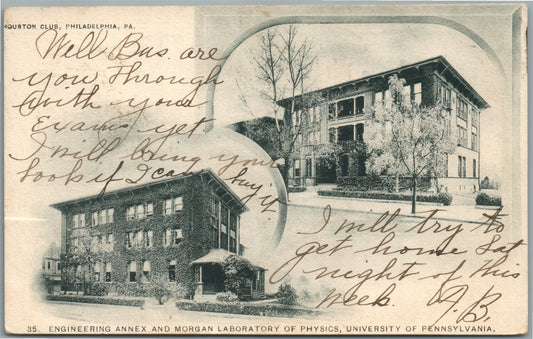 HOUSTON CLUB, PHILADELPHIA, PA.
Well Bus. are
you through
with your
Exams yet
I will bring your
book if I can buy it
I will try to
get home Sat
night of this
week. A.B.
35. ENGINEERING ANNEX AND MORGAN LABORATORY OF PHYSICS, UNIVERSITY OF PENNSYLVANIA.